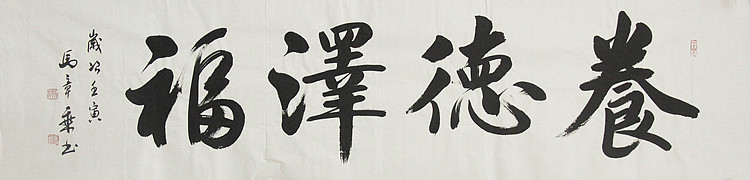 養德澤福
歲次壬寅
馬章乘书